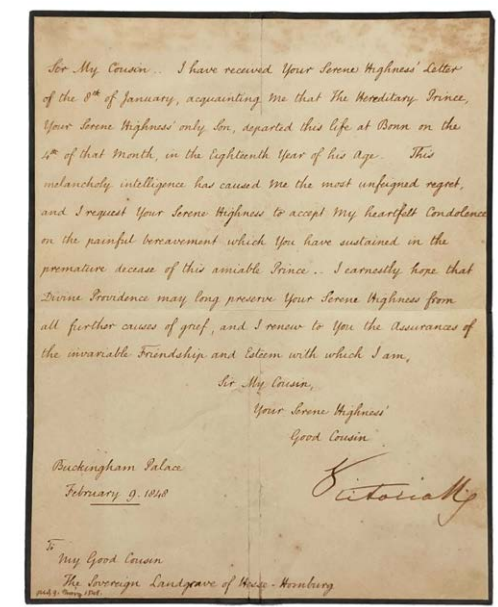 Sir My Cousin.. I have received Your Serene Highness' Letter
of the 8th of January, acquainting Me that The Hereditary Prince,
Your Serene Highness' only Son, departed this life at Bonn on the
4th of that Month, in the Eighteenth Year of his Age. This
melancholy intelligence has caused Me the most unfeigned regret,
and I request Your Serene Highness to accept My heartfelt Condolence
on the painful bereavement which You have sustained in the
premature decease of this amiable Prince.. I earnestly hope that
Divine Providence may long preserve Your Serene Highness from
all further causes of grief, and I renew to You the Assurances of
the invariable Friendship and Esteem with which I am,
Sir My Cousin,
Your Serene Highness'
Good Cousin
Buckingham Palace
February 9. 1848
Victoria R
To
My Good Cousin
The Sovereign Landgrave of Hesse-Homburg
1848.